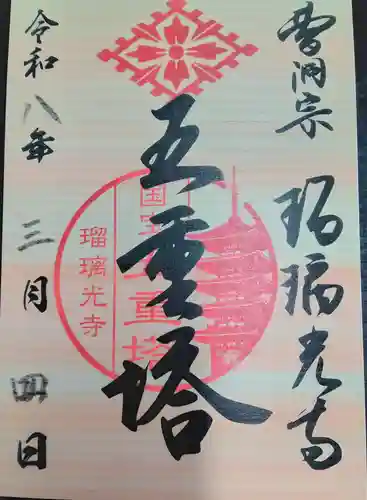 曹洞宗 瑠璃光寺
五重塔
令和八年 三月 四日
国宝五重塔
瑠璃光寺